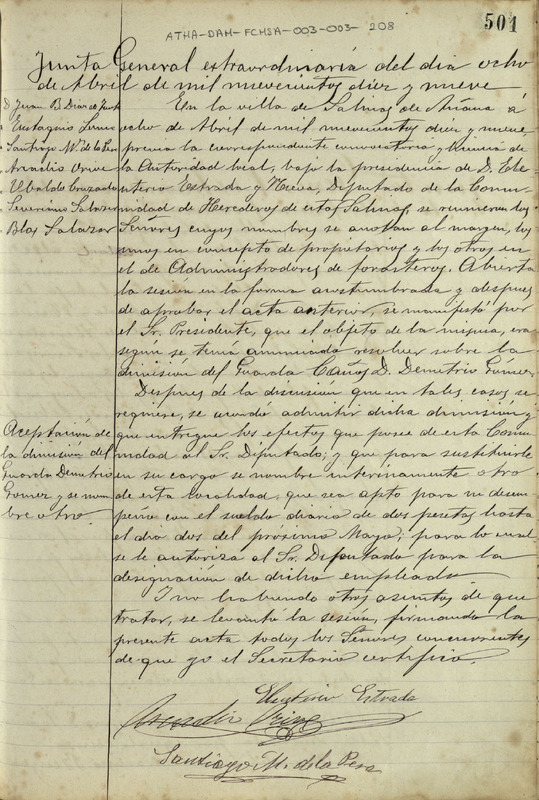 ATHA-DAH-FCHSA-003-003-208
501
Junta General extraordinaria del dia ocho
de Abril de mil nuevecientos diez y nueve
D. Juan B. Diaz de
" Eustaquio
" Santiago Mz. de la Pera
" Arcadio Orive
" Ubaldo Cruzado
" Severiano Salazar
" Blas Salazar
En la villa de Salinas de Añana á
ocho de Abril de mil nuevecientos diez y nueve
previa la correspondiente convocatoria y licencia de
la Autoridad local, bajo la presidencia de D. Eleu-
terio Estrada y Nueva, Diputado de la Comu-
nidad de Herederos de estas Salinas, se reunieron los
Señores cuyos nombres se anotan al margen, los
unos en concepto de propietarios y los otros en
el de Administradores de forasteros. Abierta
la sesion en la forma acostumbrada y despues
de aprobar el acta anterior, se manifestó por
el Sr. Presidente, que el objeto de la misma, era
según se tenia anunciado resolver sobre la
dimision del Guarda Caños D. Demetrio Gomez.
Despues de la discusión que en tales casos se
requiere, se acordo admitir dicha dimisión y
que entregue los efectos que posee de esta Comu-
nidad al Sr. Diputado; y que para sustituirle
en su cargo se nombre interinamente otro
de esta localidad, que sea apto para su desem-
peño con el sueldo diario de dos pesetas hasta
el dia dos del proximo Mayo; para lo cual
se le autoriza al Sr. Diputado para la
designación de dicho empleado.
Aceptación de
la dimision del
Guarda Demetrio
Gomez y se nom-
bre otro.
Y no habiendo otros asuntos de que
tratar, se levantó la sesión, firmando la
presente acta todos los Señores concurrentes
de que yo el Secretario certifico.
Eleuterio Estrada
Arcadio Orive
Santiago M. de la Pera